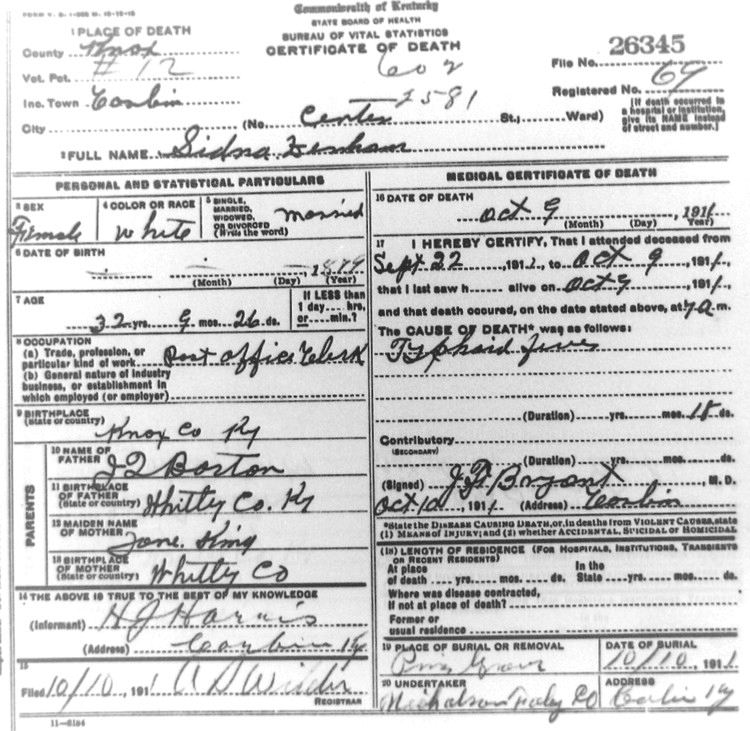 FORM V. S. 1-
Commonwealth of Kentucky
STATE BOARD OF HEALTH
BUREAU OF VITAL STATISTICS
CERTIFICATE OF DEATH
1 PLACE OF DEATH
County Knox
Vot. Pct. #12
Inc. Town Corbin
City (No. Center St.; Ward)
2581
File No. 26345
Registered No. 69
[If death occurred in a hospital or institution, give its NAME instead of street and number.]
2 FULL NAME Sidna
PERSONAL AND STATISTICAL PARTICULARS
3 SEX Female
4 COLOR OR RACE White
5 SINGLE, MARRIED, WIDOWED, OR DIVORCED (Write the word) Married
6 DATE OF BIRTH
(Month) (Day) (Year)
7 AGE 32 yrs. 9 mos. 26 ds.
If LESS than 1 day.... hrs. or.... min.?
8 OCCUPATION
(a) Trade, profession, or particular kind of work Post office Clerk
(b) General nature of industry business, or establishment in which employed (or employer)
9 BIRTHPLACE (State or country) Knox Co Ky
PARENTS
10 NAME OF FATHER Boston
11 BIRTHPLACE OF FATHER (State or country) Whitty Co. Ky
12 MAIDEN NAME OF MOTHER Jane King
13 BIRTHPLACE OF MOTHER (State or country) Whitty Co
14 THE ABOVE IS TRUE TO THE BEST OF MY KNOWLEDGE
(Informant) H J Harris
(Address) Corbin Ky.
15
Filed 10/10, 1911 Wilder
REGISTRAR
11-6184
MEDICAL CERTIFICATE OF DEATH
16 DATE OF DEATH Oct 9 1911
(Month) (Day) (Year)
17 I HEREBY CERTIFY, That I attended deceased from
Sept 22, 1911, to Oct 9, 1911,
that I last saw h alive on Oct 9, 1911,
and that death occured, on the date stated above, at 7 a m.
The CAUSE OF DEATH* was as follows:
Typhoid fever
(Duration) yrs. mos. 18 ds.
Contributory
(SECONDARY)
(Duration) yrs. mos. ds.
(Signed) Bryant, M. D.
Oct 10, 1911 (Address) Corbin
*State the DISEASE CAUSING DEATH, or, in deaths from VIOLENT CAUSES, state (1) MEANS OF INJURY; and (2) whether ACCIDENTAL, SUICIDAL or HOMICIDAL
(18) LENGTH OF RESIDENCE (FOR HOSPITALS, INSTITUTIONS, TRANSIENTS OR RECENT RESIDENTS)
At place of death yrs. mos. ds. In the State yrs. mos. ds.
Where was disease contracted,
If not at place of death?
Former or
usual residence
19 PLACE OF BURIAL OR REMOVAL
DATE OF BURIAL
10/10, 1911
20 UNDERTAKER
Nicholson
ADDRESS
Corbin Ky